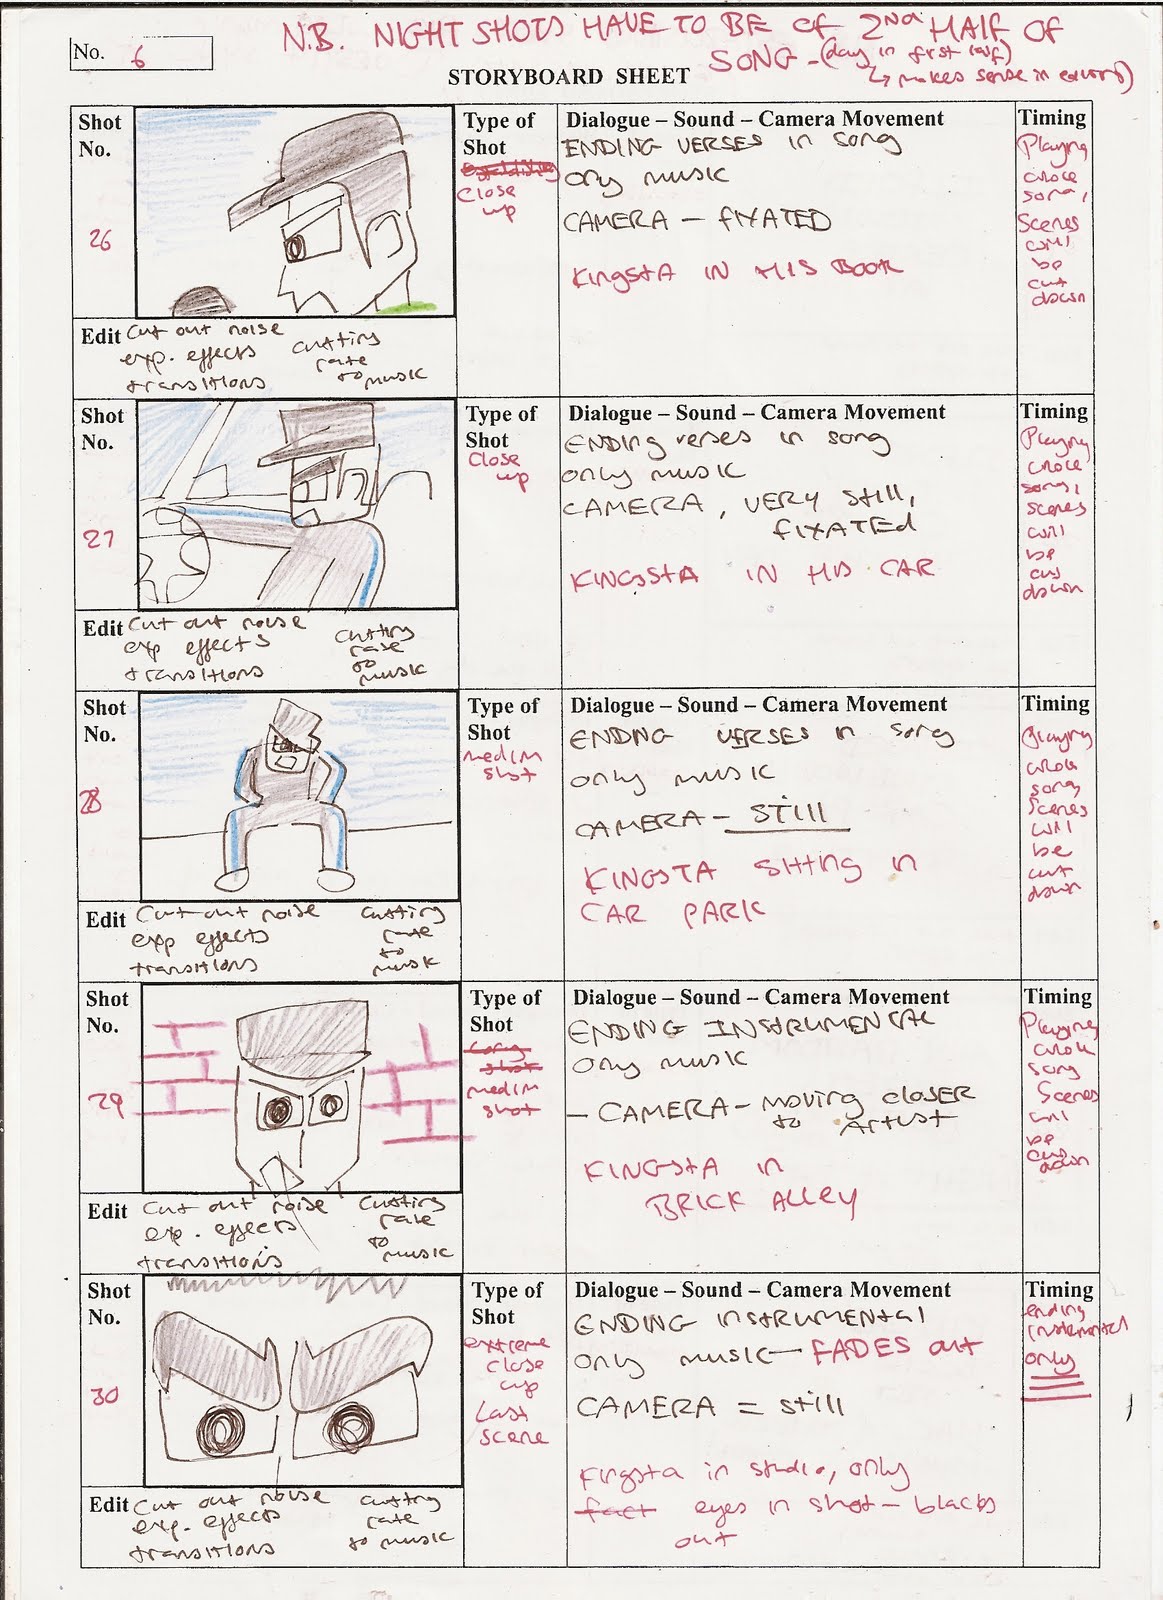 N.B. NIGHT SHOTS HAVE TO BE OF 2ND HALF OF
SONG - (day in first half)
↳ makes sense in
No. 6
STORYBOARD SHEET
Shot No.
26
Type of Shot
close up
Dialogue – Sound – Camera Movement
ENDING VERSES in song
ony music
CAMERA – fixATED
KingstA IN HIS BOOK
Timing
Playing
whole
song,
Scenes
will
be
cut
down
Edit Cut out noise
exp. effects
transitions
cutting
rate
to music
Shot No.
27
Type of Shot
Close up
Dialogue – Sound – Camera Movement
ENDING verses in song
only music
CAMERA, VERY still,
fixATED
KINGSSTA IN HIS CAR
Timing
Playing
whole
song,
scenes
will
be
cut
down
Edit Cut out noise
exp effects
transitions
cutting
rate
to
music
Shot No.
28
Type of Shot
medium shot
Dialogue – Sound – Camera Movement
ENDING VERSES in song
only music
CAMERA – STILL
KINGSTA sitting in
CAR PARK
Timing
playing
whole
song,
Scenes
will
be
cut
down
Edit Cut out noise
exp effects
transitions
cutting
rate
to
music
Shot No.
29
Type of Shot
long
shot
medium
shot
Dialogue – Sound – Camera Movement
ENDING INSTRUMENTAL
only music
– CAMERA – moving closer
to Artist
KINGSTA in
BRICK ALLEY
Timing
Playing
whole
song
Scenes
will
be
cut
down
Edit Cut out noise
exp. effects
transitions
cutting
rate
to
music
Shot No.
30
Type of Shot
extreme
close
up
Last
scene
Dialogue – Sound – Camera Movement
ENDING instrumental
only music – FADES out
CAMERA = still
Kingsta in studio, only
fact eyes in shot – blacks
out
Timing
ending
instrumental
only
Edit Cut out noise
exp. effects
transitions
cutting
rate
to music